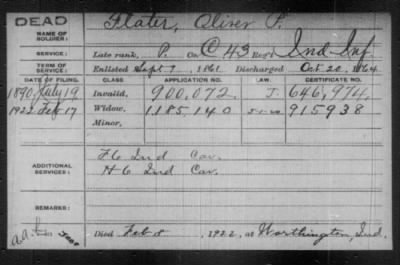 DEAD
NAME OF SOLDIER: Flater, Oliver P.
SERVICE: Late rank, P. Co. C 43 Reg't Ind Inf.
TERM OF SERVICE: Enlisted Sept 7, 1861. Discharged Oct. 20, 1864
DATE OF FILING. CLASS. APPLICATION NO. LAW. CERTIFICATE NO.
1890 July 19 Invalid, 900,072. J. 646,974,
1922 Feb 17 Widow, 1185,140 915938
Minor,
ADDITIONAL SERVICES: F 6 Ind Cav.
H 6 Ind Cav.
REMARKS:
Died Feb 8, 1922, at Worthington, Ind.